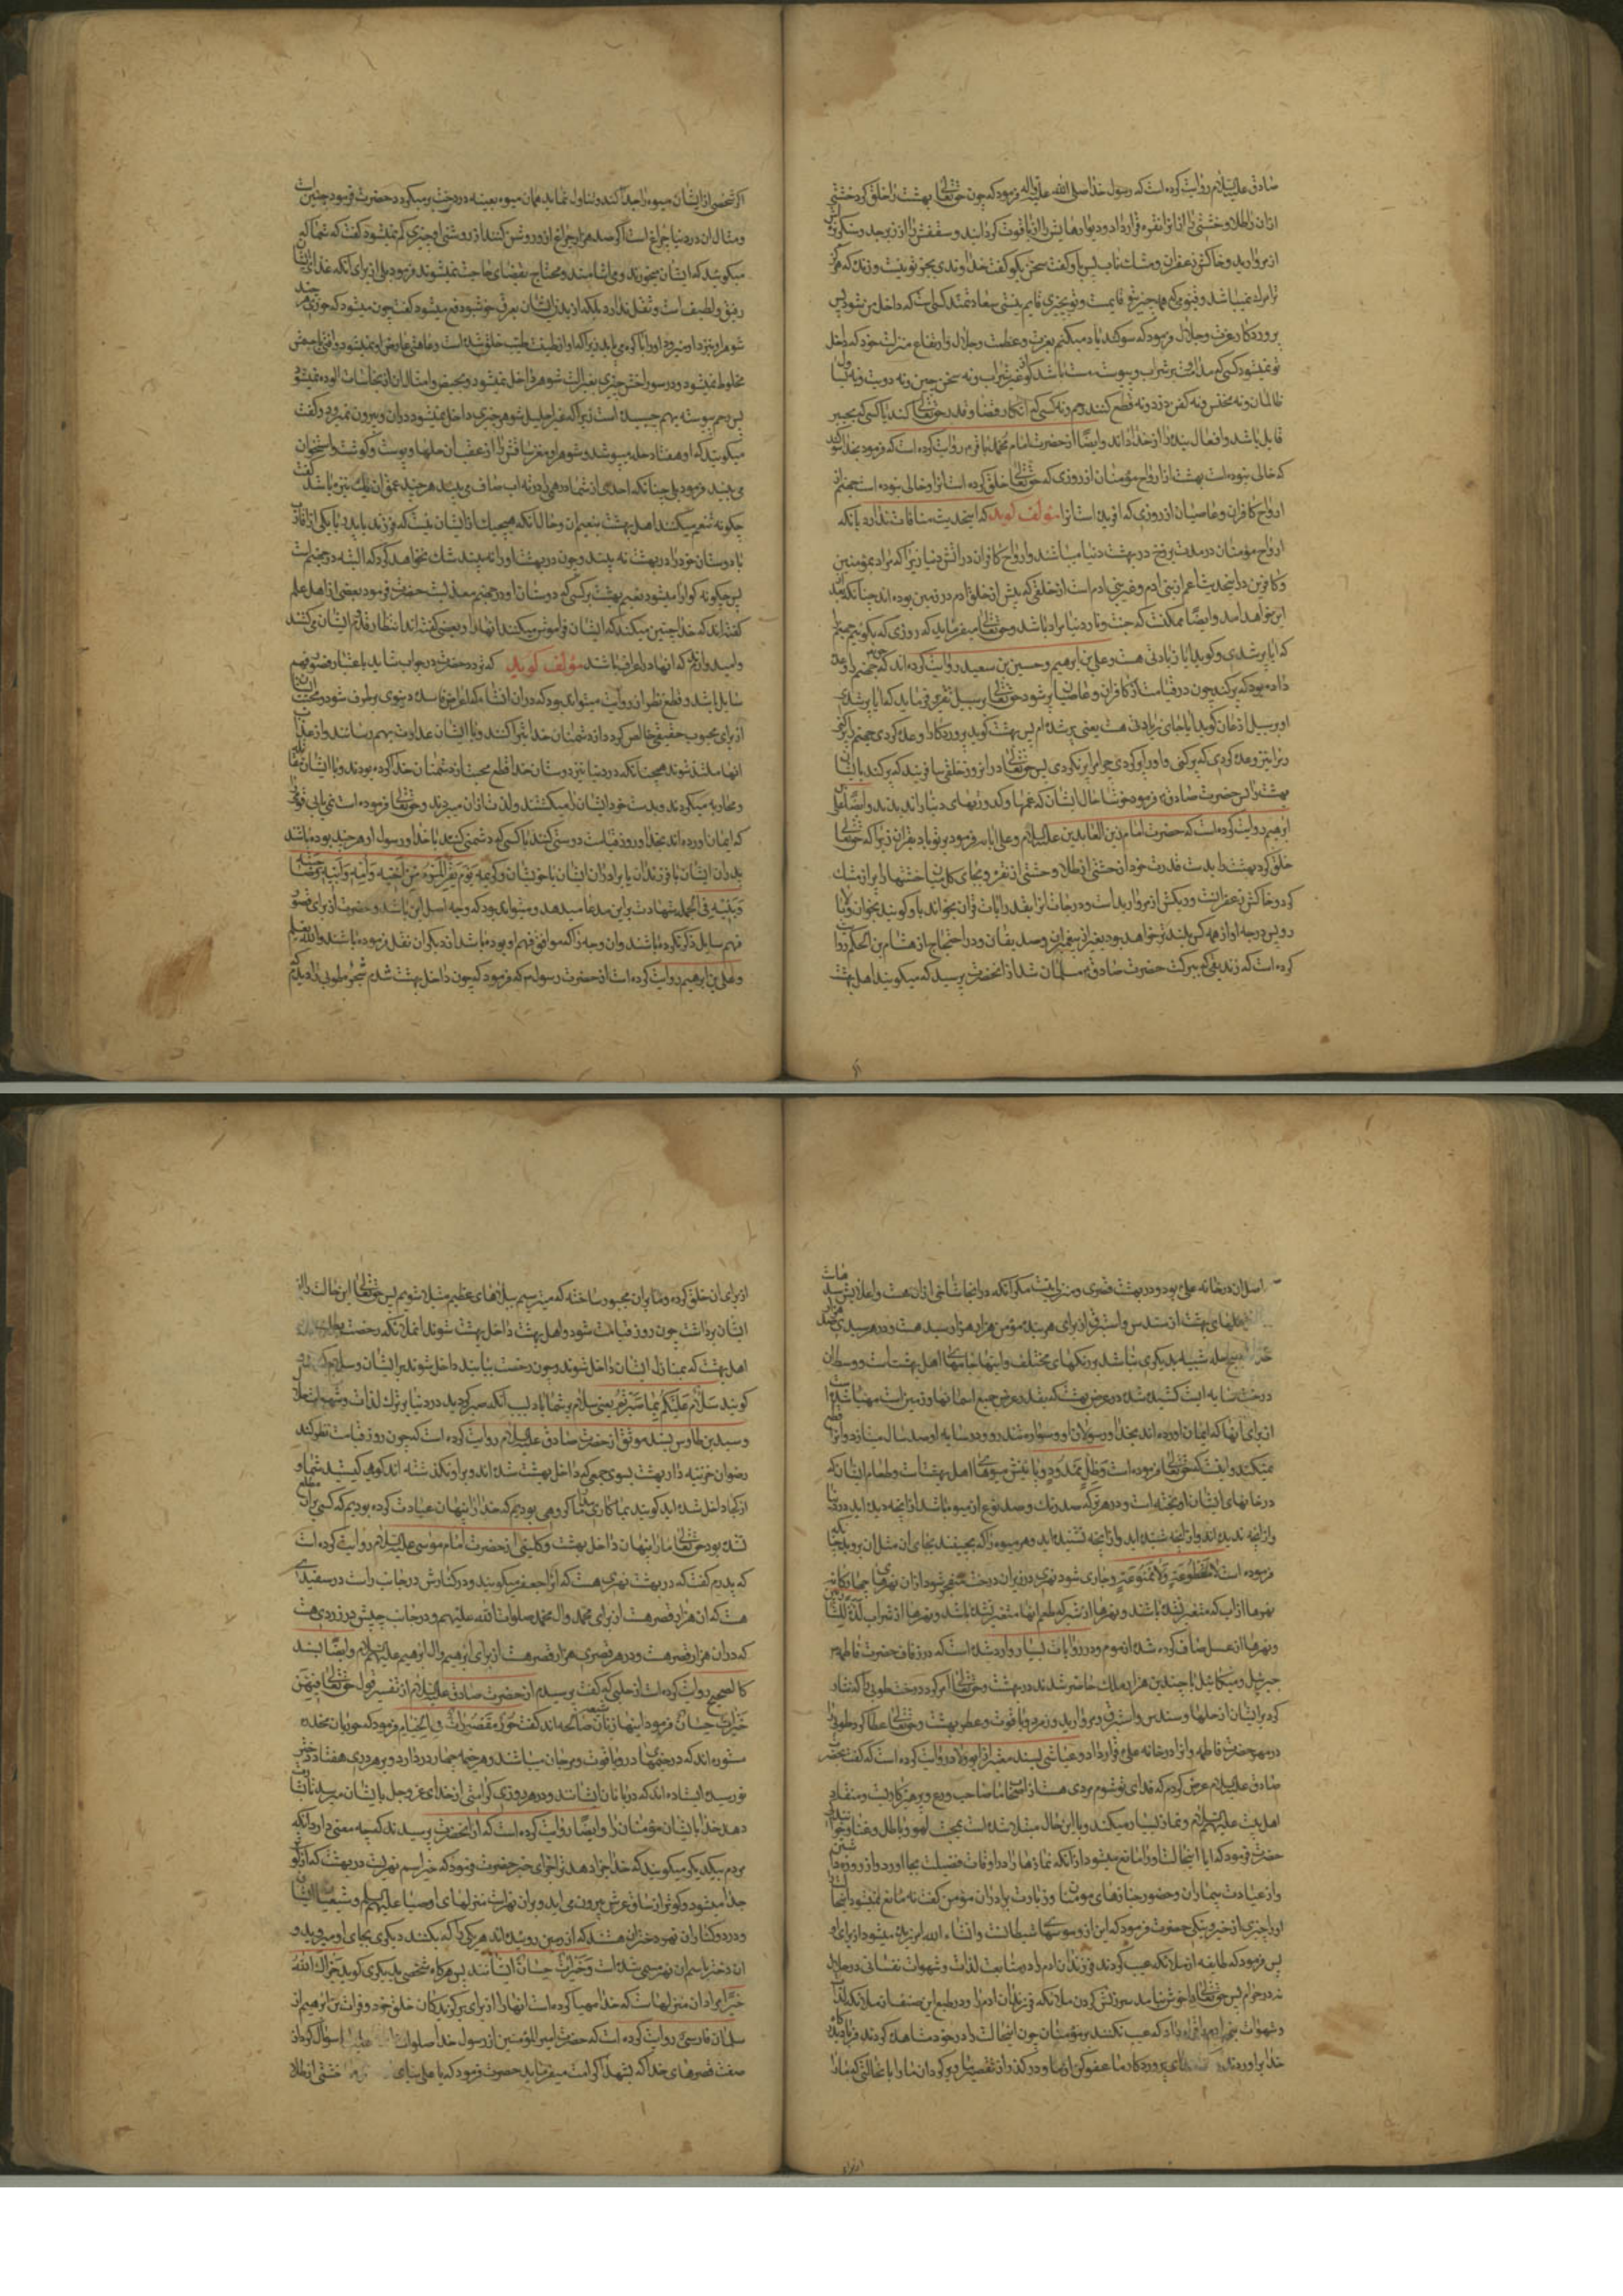 صادق علیه السلام روایت کرده است که رسول خدا صلی الله علیه واله فرمود که چون حقتعالی بهشت را خلق کرد خشتی
ازان از طلا و خشتی را از نقره قرار داد و دیوارهایش را از یاقوت کردانید و سقفش را از زبرجد و سنکریزه
از مروارید و خاکش زعفران و مشک ناب پس باو کفت سخن بکو کفت خداوندی بجز تو نیست و
پروردکار عزت و جلال فرمود که سوکند یاد میکنم بعزت و عظمت و جلال و ارتفاع منزلت خود که داخل
تو نمیشود کسی که مداومت بر شراب
ظالمان و نه کفن دزد و نه قطع کننده رحم و نه کسی که انکار قضا و قدر حقتعالی کند یا کسی که بجبر
قایل باشد و افعال بنده را از خدا داند وایضا از حضرت امام محمد باقر روایت کرده است که فرمود بخدا سوکند
که خالی نبوده است بهشت از ارواح مؤمنان از روزی که حقتعالی خلق کرده است انرا و خالی نبوده است جهنم از
ارواح کافران و عاصیان از روزی که افریده است انرا مؤلف کوید که اینحدیث منافات ندارد بانکه
ارواح مؤمنان در مدت برزخ در بهشت دنیا میباشند و ارواح کافران در اتش دنیا زیرا که مراد بمؤمنین
و کافرین در اینحدیث اعم از بنی ادم و غیر بنی ادم است از خلقی که پیش از خلق ادم در زمین بوده اند چنانکه بعد
ازین خواهد امد وایضا ممکنست که جنت و نار دنیا مراد باشد و حقتعالی میفرماید که روزی که بکوییم جهنم
که ایا پر شدی و کوید ایا زیادتی هست و علی بن ابرهیم و حسین بن سعید روایت کرده اند که جهنم را وعده
داده بود که پر کند چون در قیامت از کافران و عاصیان پر شود حقتعالی بر سبیل تقریر فرماید که ایا پر شدی
او بر سبیل اذعان کوید ایا جای زیادتی هست یعنی پر شده ام پس بهشت کوید پروردکارا وعده کردی جهنم را پر کنی
و مرا نیز وعده کردی که پر کنی و او را پر کردی چرا مرا پر نکردی پس حقتعالی درانروز خلقی بیافریند که پر کند بایشان
بهشت را پس حضرت صادق فرمود خوشا حال ایشان که غمها و کدورتهای دنیا را ندیدند وایضا علی
ابرهیم روایت کرده است که حضرت امام زین العابدین علیه السلام فرمود بر تو باد بقران زیرا که حقتعالی
خلق کرد بهشت را بدست قدرت خود ازان خشتی از طلا و خشتی از نقره و بجای کل میان خشتها را پر از مشک
کرد و خاکش زعفرانست و ریکش از مروارید است و درجات انرا بقدر ایات قران
کرده است که زندیقی که ببرکت حضرت صادق مسلمان شد از انحضرت پرسید که میکویند اهل بهشت
اکر شخصی از ایشان میوه را جدا کند و تناول نماید همان میوه بعینه در درخت بر میکردد حضرت فرمود چنین است
و مثال ان در دنیا چراغ است اکر صد هزار چراغ ازو روشن کنند از روشنی او چیزی کم نمیشود کفت که شما
میکویید که ایشان میخورند و می اشامند و محتاج بقضای حاجت نمیشوند فرمود بلی از برای انکه غذای ایشان
رقیق و لطیف است و ثقل ندارد بلکه از بدن ایشان بعرق خوشبو دفع میشود کفت چون میشود که حوری هر چند
شوهر او نزد او میرود او را باکره می یابد زیرا که او از طینت طیب خلق شده است و عاهتی عارض او نمیشود
مخلوط نمیشود و در سوراخش چیزی بغیر الت شوهر داخل نمیشود و بحیض و امثال ان از نجاسات الوده نمیشود
میکویند که او هفتاد حله میپوشد و شوهر او مغز ساقش را از عقب ان حلها و پوست و کوشت و استخوان
می بیند فرمود بلی چنانکه احدی از شما درهمی را در ته اب صاف می بیند هر چند عمق ان یک نیزه باشد کفت
چکونه تنعم میکنند اهل بهشت بنعیم ان و حال انکه هیچیک از ایشان نیست که فرزند یا پدر یا یکی از اقارب
یا دوستان خود را در بهشت نه بیند و چون در بهشت او را نه بیند شک نخواهد کرد که البته در جهنم است
پس چکونه کوارا میشود نعیم بهشت بر کسی که دوستان او در جهنم معذبست حضرت فرمود بعضی از اهل علم
کفته اند که خدا چنین میکند که ایشان فراموش میکنند انها را و بعضی کفته اند انتظار قدوم ایشان می کشند
و امیدوارند که انها در اعراف باشند مؤلف کوید که تردد حضرت در جواب شاید باعتبار قصور فهم
سایل باشد
از برای محبوب حقیقی خالص کردد از دشمنان خدا تبرا کنند و با ایشان عداوت بهم رسانند و از عذاب
انها ملتذ شوند همچنانکه در دنیا نیز دوستان خدا قطع محبت از دشمنان خدا کرده بودند و با ایشان مقاتله
و محاربه میکردند و بدست خود ایشان را میکشتند و لذت ازان میبردند و حقتعالی فرموده است نمی یابی قومی
که ایمان اورده اند بخدا و روز قیامت دوستی کنند با کسی که دشمنی کند با خدا و رسول او هر چند بوده باشند
پدران ایشان یا فرزندان یا برادران ایشان یا خویشان و کریمه یوم یفر المرء من اخیه وامه وابیه وصاحبته
وبنیه فی الجمله شهادت بر این مدعا میدهد و میتواند بود که وجه اصل این باشد و حضرت از برای قصور
فهم سایل ذکر نکرده باشند و ان وجه را که موافق فهم او بوده باشد از دیکران نقل فرموده باشند والله یعلم
و علی بن ابرهیم روایت کرده است از حضرت رسول که فرمود که چون داخل بهشت شدم شجر طوبی را دیدم که
اصل ان در خانه علی بود و در بهشت قصری و منزلی نیست مکر انکه در انجا شاخی ازان هست و اعلایش
حلهای بهشت از سندس و استبرق از برای هر بنده مؤمن هزار هزار سبد هست و در هر سبدی صد هزار
هیچ حله شبیه بدیکری نباشد برنکهای مختلف و اینها جامهای اهل بهشت است و وسط ان
درخت سایه ایست کشیده شده در عرض بهشت که بقدر عرض جمیع اسمانها و زمین است مهیا شده
از برای انها که ایمان اورده اند بخدا و رسولان او و سوار تندرو در سایه او صد سال میتازد و انرا قطع
نمیکند و اینست که حقتعالی فرموده است وظل ممدود و پایینش میوهای اهل بهشتست و طعام ایشان که
در خانهای ایشان اویخته است و در هر ترکه صد رنک و صد نوع از میوه باشد از انچه دیده اید در دنیا
و از انچه ندیده اید و از انچه شنیده اید و از انچه نشنیده اید و هر میوه را که بچینند بجای ان مثل ان بروید چنانکه
فرموده است لا مقطوعة ولا ممنوعة و جاری شود نهری در زیر ان درخت که منفجر شود ازان نهرهای چهارکانه
نهرها از اب که متغیر نشده باشد و نهرها از شیر که طعم انها متغیر نشده باشد و نهرها از شراب لذة للشاربین
و نهرها از عسل صاف کرده شده از موم و در روایات بسیار وارد شده است که در زفاف حضرت فاطمه
جبرئیل و میکائیل با چندین هزار ملک حاضر شدند در بهشت و حقتعالی امر کرد درخت طوبی را که نثار
کرد بر ایشان از حلها و سندس و استبرق و مروارید و زمرد و یاقوت و عطر بهشت و حقتعالی عطا کرد طوبی را
در مهر حضرت فاطمه و انرا در خانه علی قرار داد و عیاشی بسند معتبر از ابو ولاد روایت کرده است که کفت بحضرت
صادق علیه السلام عرض کردم که فدای تو شوم مردی هست از اصحاب ما صاحب ورع و پرهیزکاریست و منقاد
اهل بیت علیهم السلام و نماز بسیار میکند و با این حال مبتلا شده است بمحبت لهو و باطل و غنا
حضرت فرمود که ایا اینحالت او را مانع میشود از انکه نمازها را در اوقات فضیلت بجا اورد و از روزه داشتن
و از عیادت بیماران و حضور جنازهای مؤمنان و زیارت برادران مؤمن کفت نه مانع نمیشود اینحالت
او را چیزی از خیر و نیکی حضرت فرمود که این از وسوسهای شیطانست و انشاء الله امرزیده میشود از برای او
پس فرمود که طایفه از ملائکه عیب کردند فرزندان ادم را در متابعت لذات و شهوات نفسانی در حلال
نه در حرام پس حقتعالی را خوش نیامد سرزنش کردن ملائکه فرزندان ادم را و در طبع این صنف از ملائکه لذات
و شهوات بنی ادم را قرار داد که عیب نکنند بر مؤمنان چون اینحالت را در خود مشاهده کردند فریاد بدرکاه
خدا براوردند ای پروردکار ما عفو کن از ما و در کذر از تقصیر ما و بر کردان ما را باحالتی که ما را
از برای ان خلق کرده و ما بران مجبور ساخته که میترسیم ببلاهای عظیم مبتلا شویم پس حقتعالی این حال را از
ایشان برداشت چون روز قیامت شود و اهل بهشت داخل بهشت شوند ان ملائکه رخصت بطلبند از
اهل بهشت که بمنازل ایشان داخل شوند و چون رخصت بیابند داخل شوند بر ایشان و سلام کنند و
کویند سلام علیکم بما صبرتم یعنی سلام بر شما باد بسبب انکه صبر کردید در دنیا بر ترک لذات و شهوات حلال
و سید بن طاوس بسند موثق از حضرت صادق علیه السلام روایت کرده است که چون روز قیامت نظر کند
رضوان خزینه دار بهشت بسوی جمعی که داخل بهشت شده اند و بر او نکذشته اند کوید کیستید شما و
از کجا داخل شده اید کویند بما کاری مدار ما کروهی بودیم که خدا را پنهان عبادت کرده بودیم که کسی بران مطلع
نشده بود حقتعالی ما را پنهان داخل بهشت و کلینی از حضرت امام موسی علیه السلام روایت کرده است
که پدرم کفت که در بهشت نهری هست که انرا جعفر میکویند و در کنارش در جانب راست در سفیدی
هست که ان هزار قصر هست از برای محمد وال محمد صلوات الله علیهم و در جانب چپش در زردی هست
که دران هزار قصر هست و در هر قصری هزار قصر هست از برای ابرهیم وال ابرهیم علیهم السلام وایضا بسند
کالصحیح روایت کرده است از حلبی که کفت پرسیدم از حضرت صادق علیه السلام از تفسیر قول حقتعالی فیهن
خیرات حسان فرمود اینها زنان صالحه شیعه اند کفت حور مقصورات فی الخیام فرمود که حوریان مخدره
مستوره اند که در خیمهای در و یاقوت و مرجان میباشند و هر خیمه چهار در دارد و بر هر دری هفتاد دختر
نورسیده ایستاده اند که دربانان ایشانند و در هر روزی کرامتی از خدای عز و جل بایشان میرسد تا بشارت
دهد خدا بایشان مؤمنان را وایضا روایت کرده است که از انحضرت پرسیدند که چه معنی دارد انکه
مردم بیکدیکر میکویند که خدا جزا دهد ترا جزای خیر حضرت فرمود که خیر اسم نهریست در بهشت که از کوثر
جدا میشود و کوثر از ساق عرش بیرون می اید و بران نهر است منزلهای اوصیا علیهم السلم و شیعیان ایشان
و در دو کنار ان نهر دختران هستند که از زمین روییده اند هر یکی را که بکنند دیکری بجای او میروید و
ان دختر باسم ان نهر مسمی شده است و خیرات حسان ایشانند پس هر کاه شخصی بدیکری کوید جزاک الله
خیرا مراد ان منزلهاست که خدا مهیا کرده است انها را از برای برکزیدکان خلق خود و فرات بن ابرهیم از
سلمان فارسی روایت کرده است که حضرت امیر المؤمنین از رسول خدا صلوات سؤال کرد از
صفت قصرهای خدا که بشهدا کرامت میفرماید حضرت فرمود که یا علی بنای خشتی از طلا